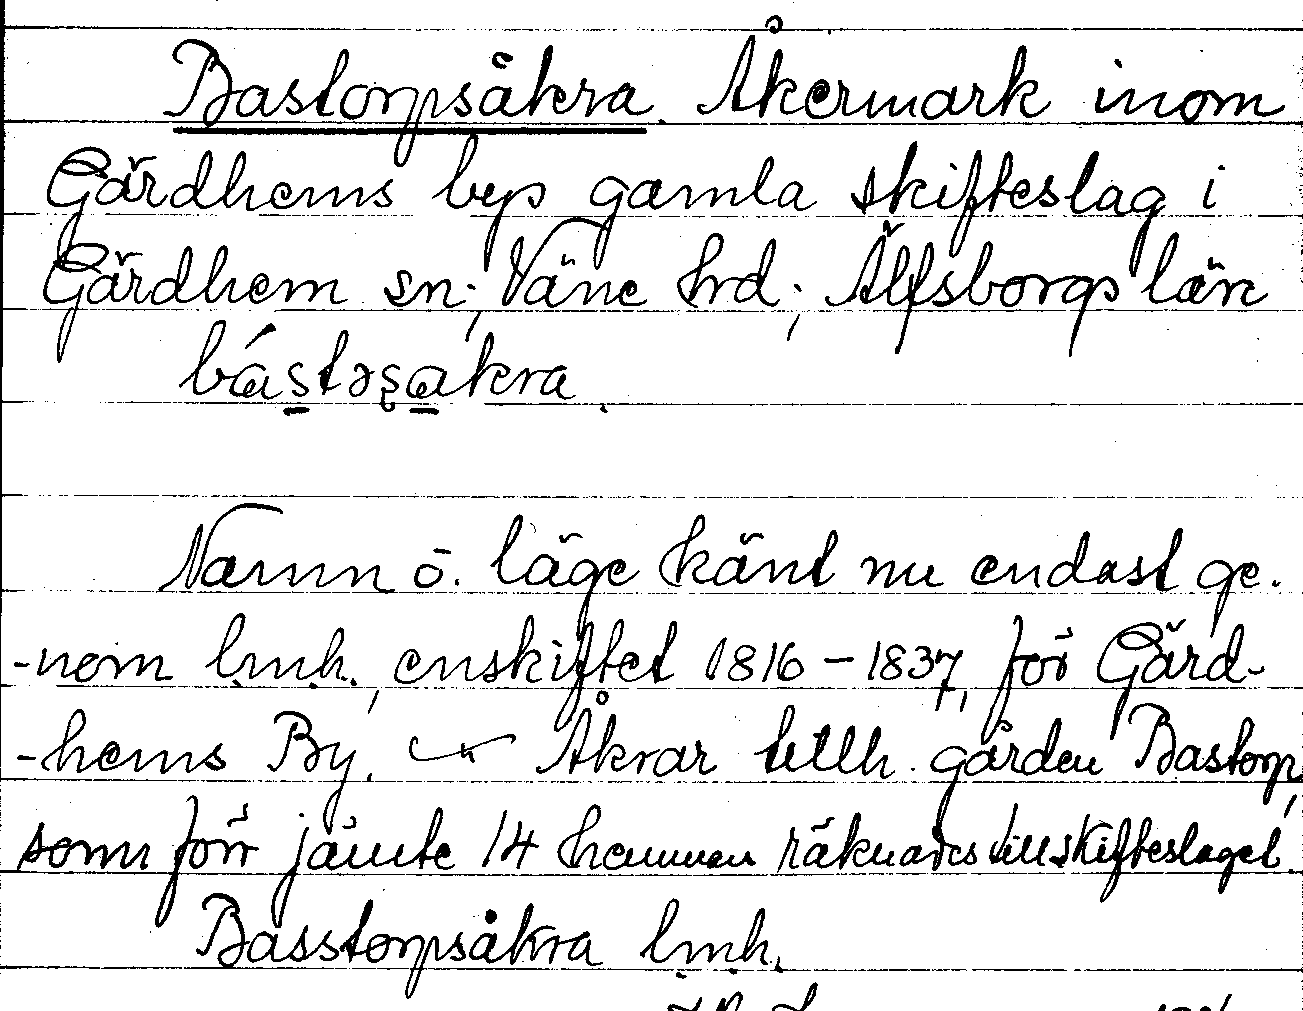 Bastorpsåkra. Åkermark inom
Gärdhems bys gamla skifteslag i
Gärdhem sn; Väne hrd; Älfsborgs län
bástəsakra.
Namn o. läge känt nu endast ge-
-nom lmh., enskiftet 1816-1837, för Gärd-
-hems By. Åkrar tillh. gården Bastorp,
som förr jämte 14 hemman räknades till skifteslaget.
Basstorpsåkra lmh.